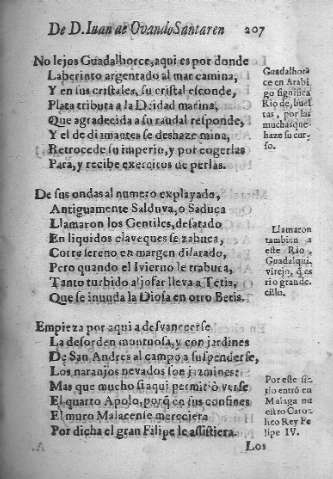 De D. Iuan de Ovando Santaren 207
No lejos Guadalhorce, aqui es por donde
Laberinto argentado al mar camina,
Y en sus cristales, su cristal esconde,
Plata tributa a la Deidad marina,
Que agradecida a su raudal responde,
Y el de diamantes se deshaze mina,
Retrocede su imperio, y por cogerlas
Para, y recibe exercitos de perlas.
Guadalhora
ce en Arabi
go significa
Rio de, buel
tas, por las
muchas que
haze su cur-
so.
De sus ondas al numero explayado,
Antiguamente Salduva, o Saduca
Llamaron los Gentiles, desatado
En liquidos claveques se zabuca,
Corre sereno en margen dilatado,
Pero quando el Ivierno le trabuca,
Tanto turbido aljofar lleva a Tetis,
Que se inunda la Diosa en otro Betis.
Llamaron
tambien a
este Rio,
Guadalqui
virejo, q̃ es
rio grande-
cillo.
Empieza por aqui a desvanecerse
La desorden montuosa, y con jardines
De San Andres al campo a suspenderse,
Los naranjos nevados son jazmines:
Mas que mucho si aqui permitiò verse
El quarto Apolo, porq̃ en sus confines
El muro Malacense mereciera
Por dicha el gran Filipe le assistiera.
Por este si-
tio entrò en
Malaga nu
estro Cato-
lico Rey Fe
lipe IV.
Los